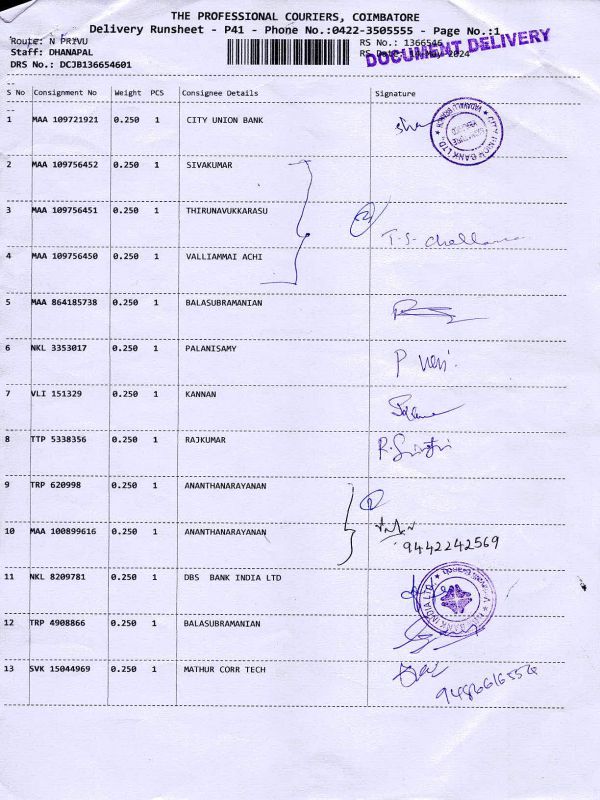 THE PROFESSIONAL COURIERS, COIMBATORE
Delivery Runsheet - P41 - Phone No.:0422-3505555 - Page No.:1
Route: N PRIVU
RS No.: 1366546
DOCUMENT DELIVERY
Staff: DHANAPAL
2024
DRS No.: DCJB136654601
S No Consignment No Weight PCS Consignee Details Signature
1 MAA 109721921 0.250 1 CITY UNION BANK
2 MAA 109756452 0.250 1 SIVAKUMAR
3 MAA 109756451 0.250 1 THIRUNAVUKKARASU
4 MAA 109756450 0.250 1 VALLIAMMAI ACHI
5 MAA 864185738 0.250 1 BALASUBRAMANIAN
6 NKL 3353017 0.250 1 PALANISAMY
7 VLI 151329 0.250 1 KANNAN
8 TTP 5338356 0.250 1 RAJKUMAR
9 TRP 620998 0.250 1 ANANTHANARAYANAN
10 MAA 100899616 0.250 1 ANANTHANARAYANAN
9442242569
11 NKL 8209781 0.250 1 DBS BANK INDIA LTD
12 TRP 4908866 0.250 1 BALASUBRAMANIAN
13 SVK 15044969 0.250 1 MATHUR CORR TECH